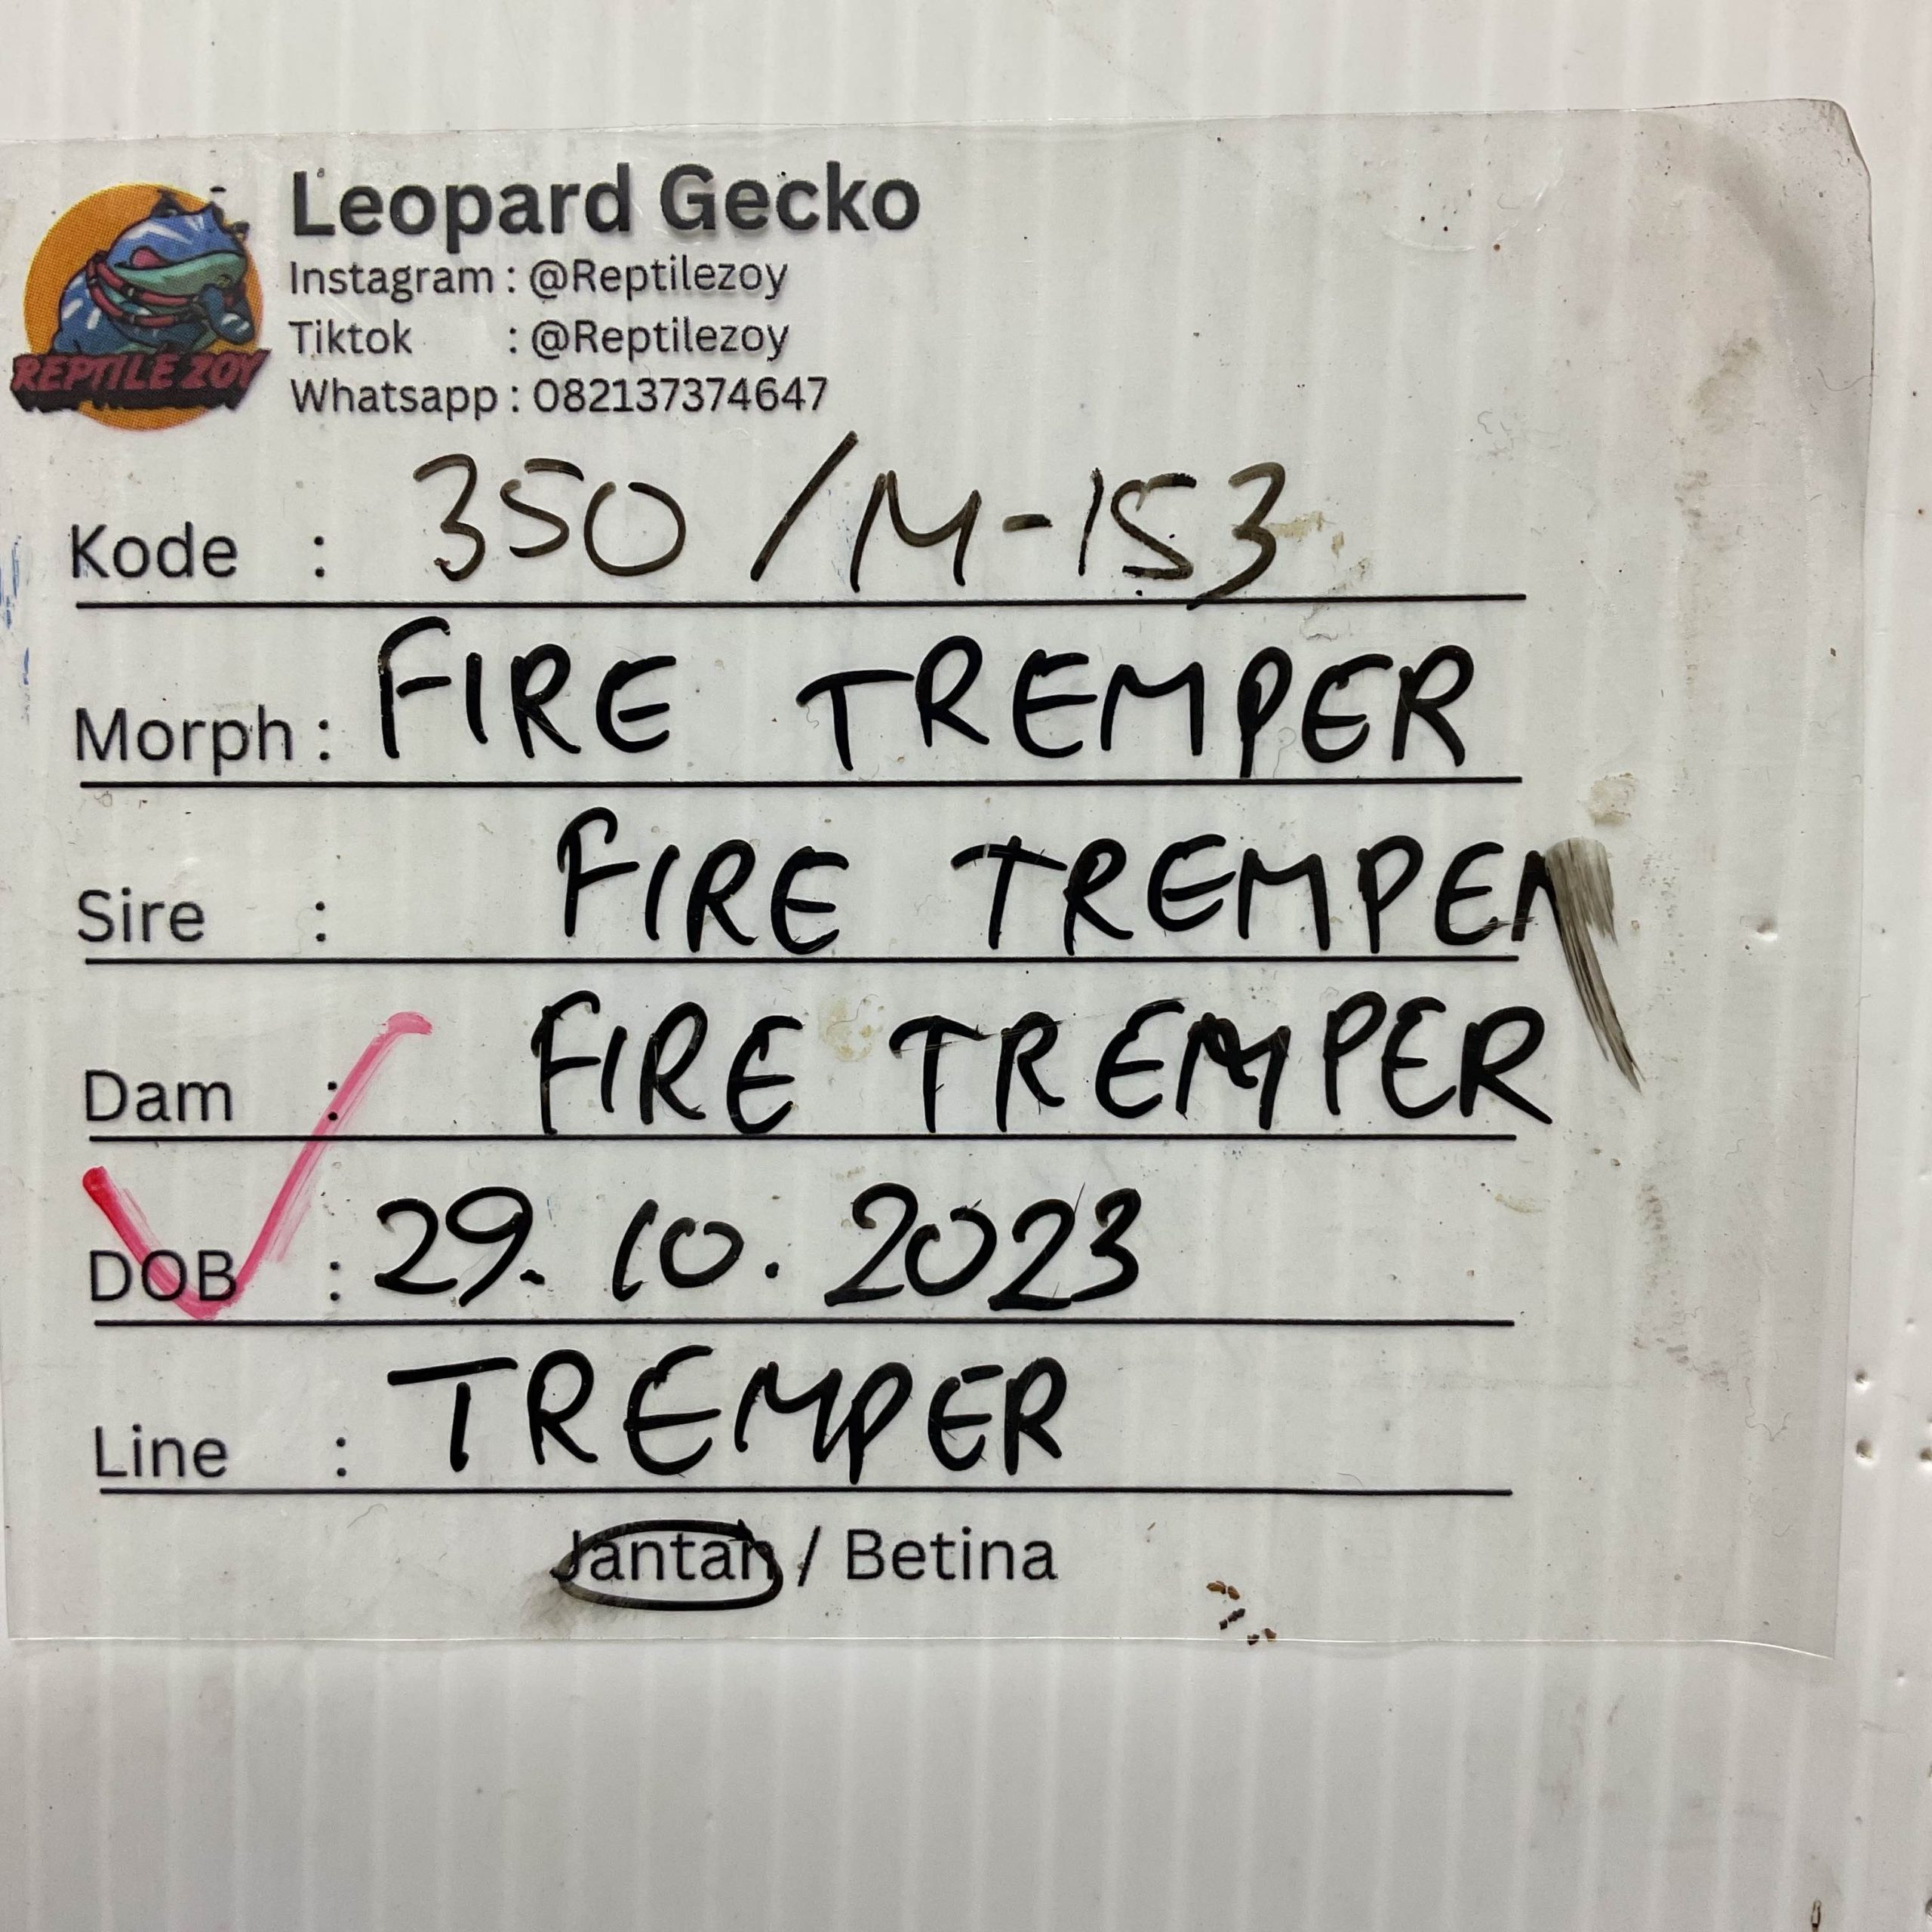 Leopard Gecko
Instagram : @Reptilezoy
Tiktok : @Reptilezoy
Whatsapp : 082137374647
REPTILE ZOY
Kode : 350 / M-153
Morph : FIRE TREMPER
Sire : FIRE TREMPER
Dam : FIRE TREMPER
DOB : 29. 10. 2023
Line : TREMPER
Jantan / Betina